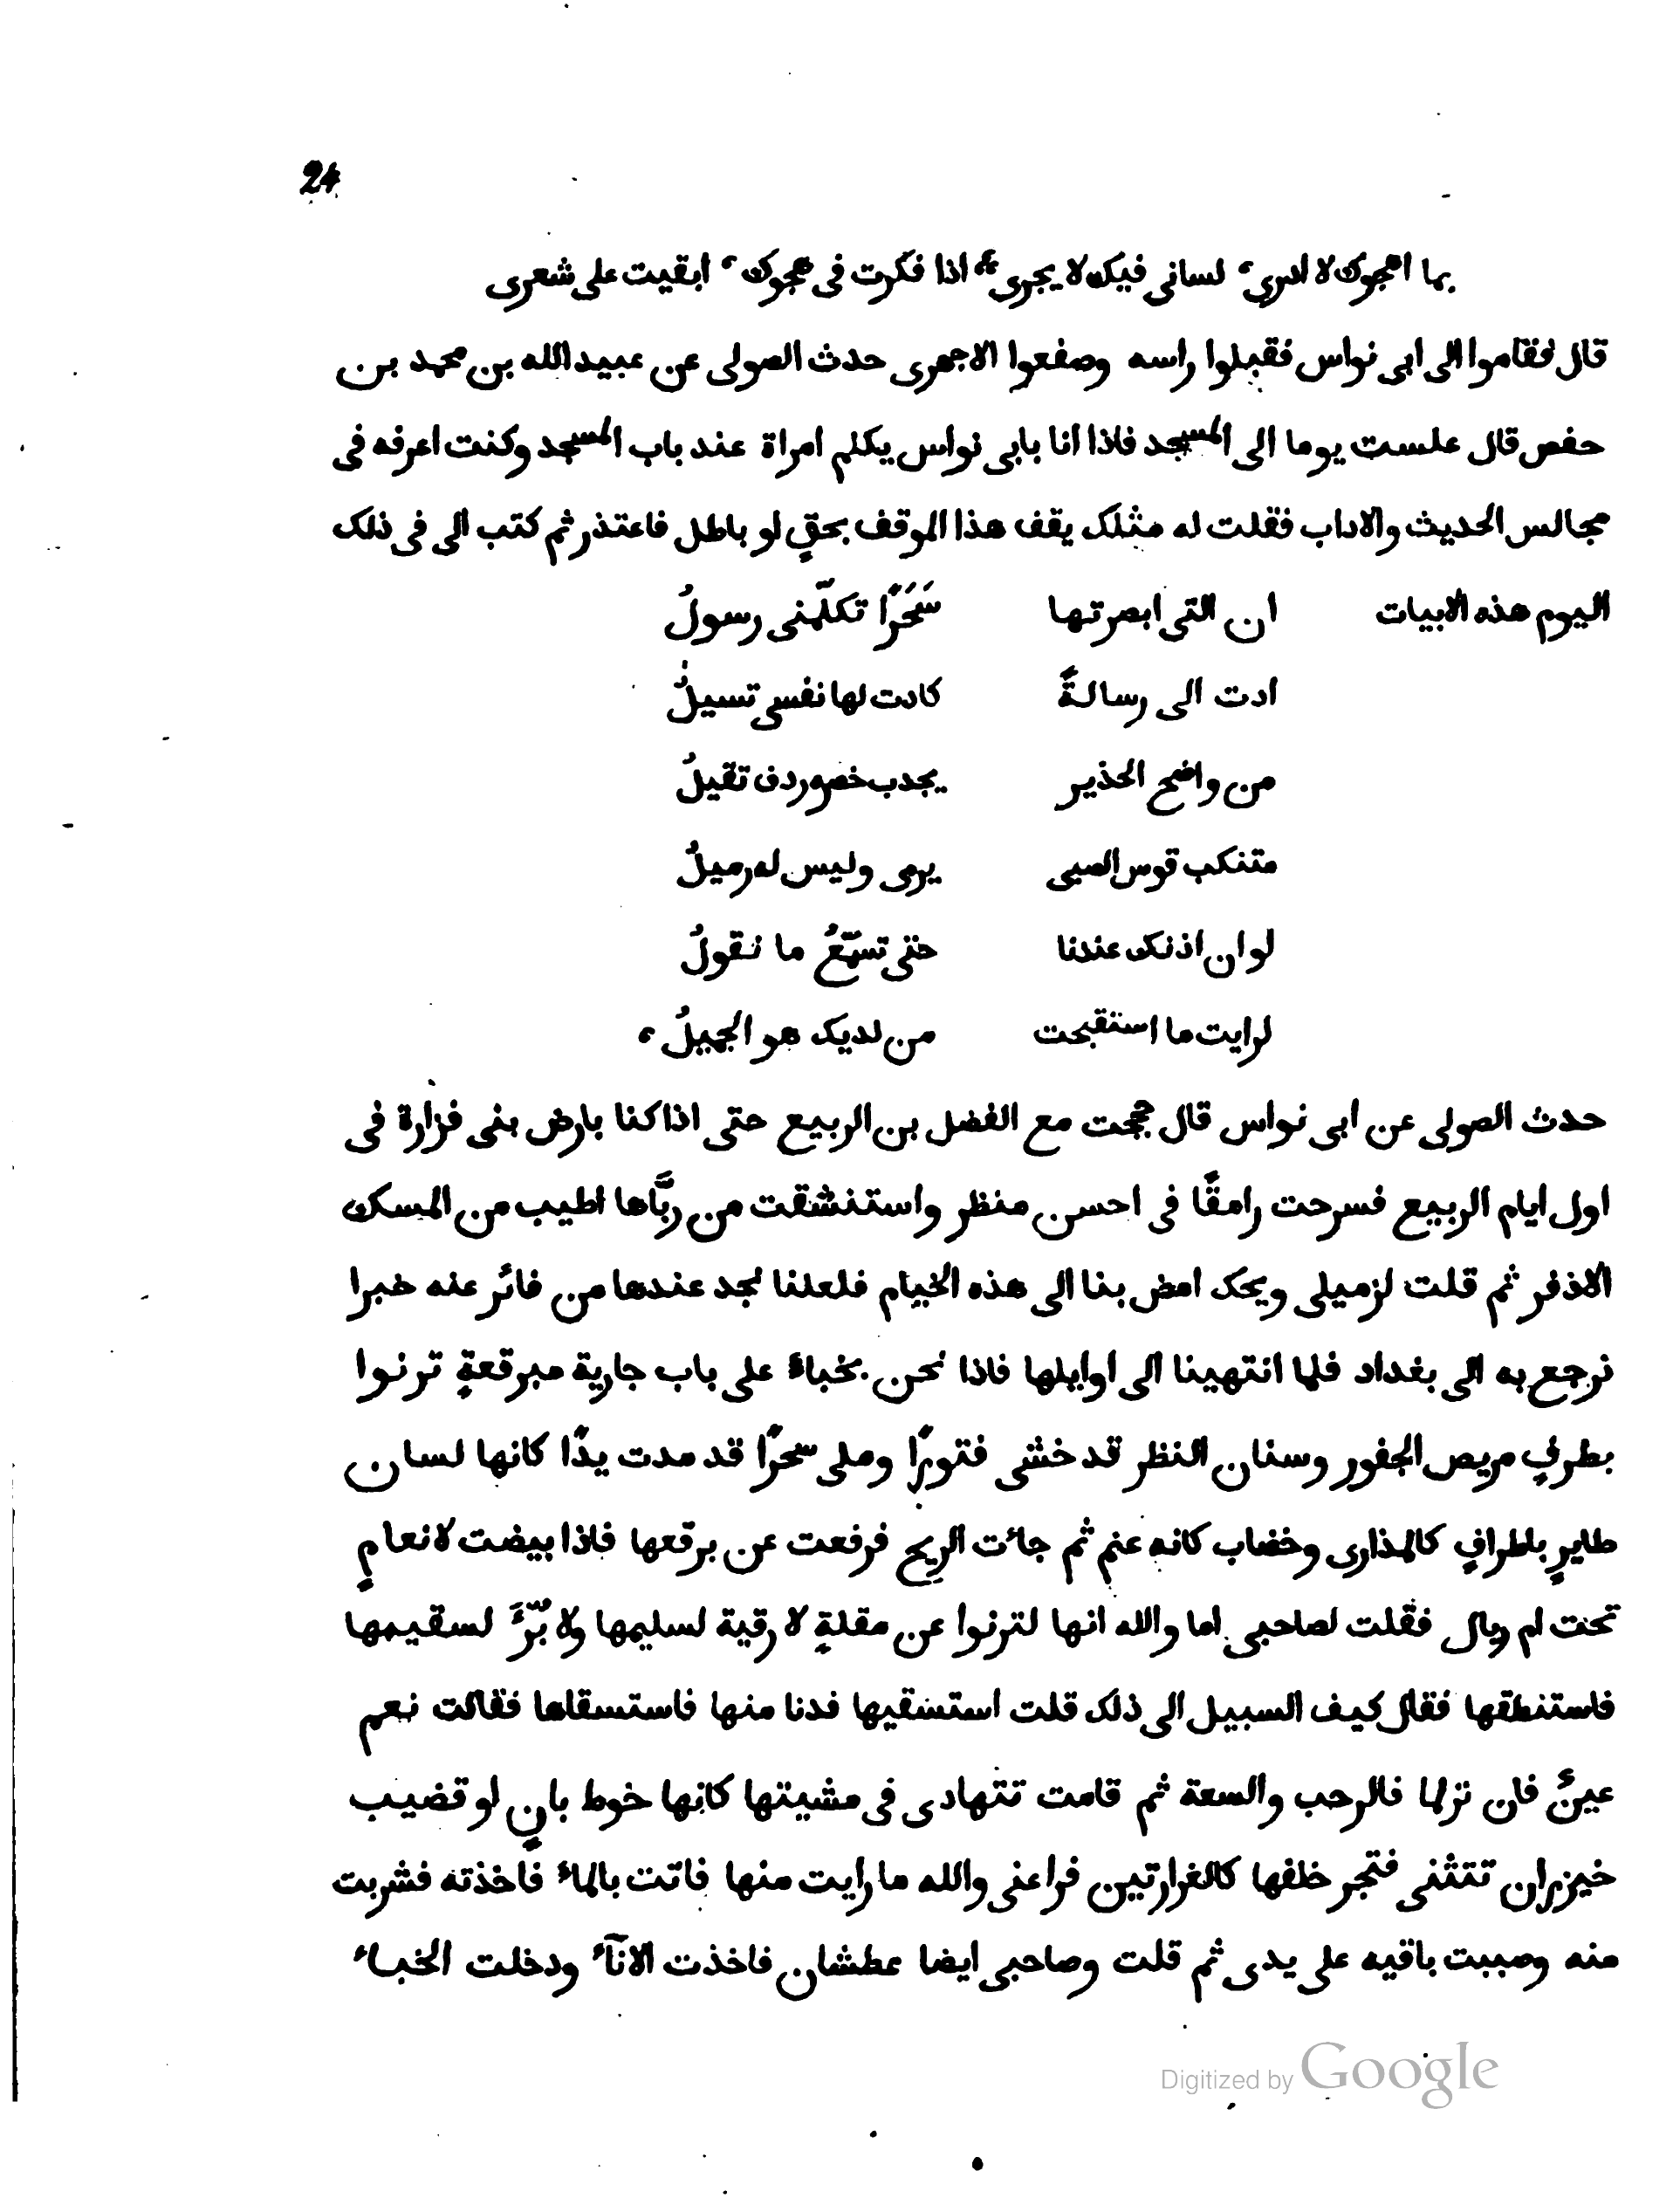 24
بما اهجوك لا ادرى، لسانى فيك لا يجرى * اذا فكرت فى هجوك، ابقيت على شعرى
قال فقاموا الى ابى نواس فقبلوا راسه وصفعوا الاجهرى حدث الصولى عن عبيد الله بن محمد بن
حفص قال علست يوما الى المسجد فاذا انا بابى نواس يكلم امراة عند باب المسجد وكنت اعرفه فى
مجالس الحديث والاداب فقلت له مثلك يقف هذا الموقف بحقٍ او باطل فاعتذر ثم كتب الى فى ذلك
اليوم هذه الابيات ان التى ابصرتها سَحَرًا تكلّمنى رسولُ
ادت الى رسالةً كادت لها نفسى تسيلُ
من واضح الحذير يجدب خصره ردف تقيلُ
متنكب قوس الصبى يرمى وليس له رميلُ
لو ان اذنك عندنا حتى تسمّعُ ما نقولُ
لرايت ما استقبحت من لديك هو الجميلُ،
حدث الصولى عن ابى نواس قال حججت مع الفضل بن الربيع حتى اذا كنا بارض بنى فزارة فى
اول ايام الربيع فسرحت رامقًا فى احسن منظر واستنشقت من ربَّاها اطيب من المسك
الاذفر ثم قلت لزميلى ويحك امض بنا الى هذه الخيام فلعلنا نجد عندها من فائر عنه خبرا
نرجع به الى بغداد فلما انتهينا الى اوايلها فاذا نحن بخباء على باب جارية مبرقعةٍ ترنوا
بطرفٍ مريص الجفور وسنان النظر قد خشى فتورًا وملى سحرًا قد مدت يدًا كانها لسان
طايرٍ باطرافٍ كالمذارى وخضاب كانه عنم ثم جائت الريح فرفعت عن برقعها فاذا بيضت لانعامٍ
تحت ام ريال فقلت لصاحبى اما والله انها لترنوا عن مقلةٍ لا رقية لسليمها ولا بّرَّءَ لسقيمها
فاستنطقها فقال كيف السبيل الى ذلك قلت استسقيها فدنا منها فاستسقاها فقالت نعم
عينٌ فان نزلما فالرحب والسعة ثم قامت تتهادى فى مشيتها كانها خوط بانٍ او قضيب
خيزران تتثنى فتجر خلفها كالغرارتين فراعنى والله ما رايت منها فاتت بالماء فاخذته فشربت
منه وصببت باقيه على يدى ثم قلت وصاحبى ايضا عطشان فاخذت الانآء ودخلت الخباء
Digitized by Google